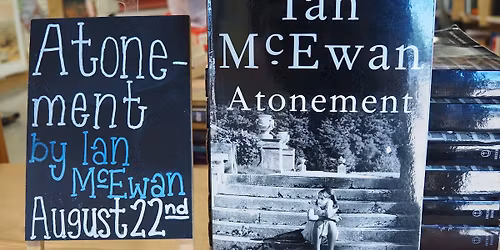 Atone-
ment
by Ian
McEwan
August 22nd
Ian
McEwan
Atonement